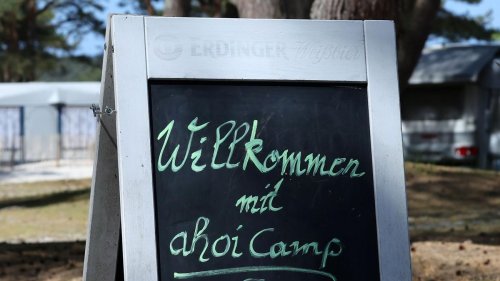 ERDINGER Weißbier
Willkommen
mit
ahoi Camp